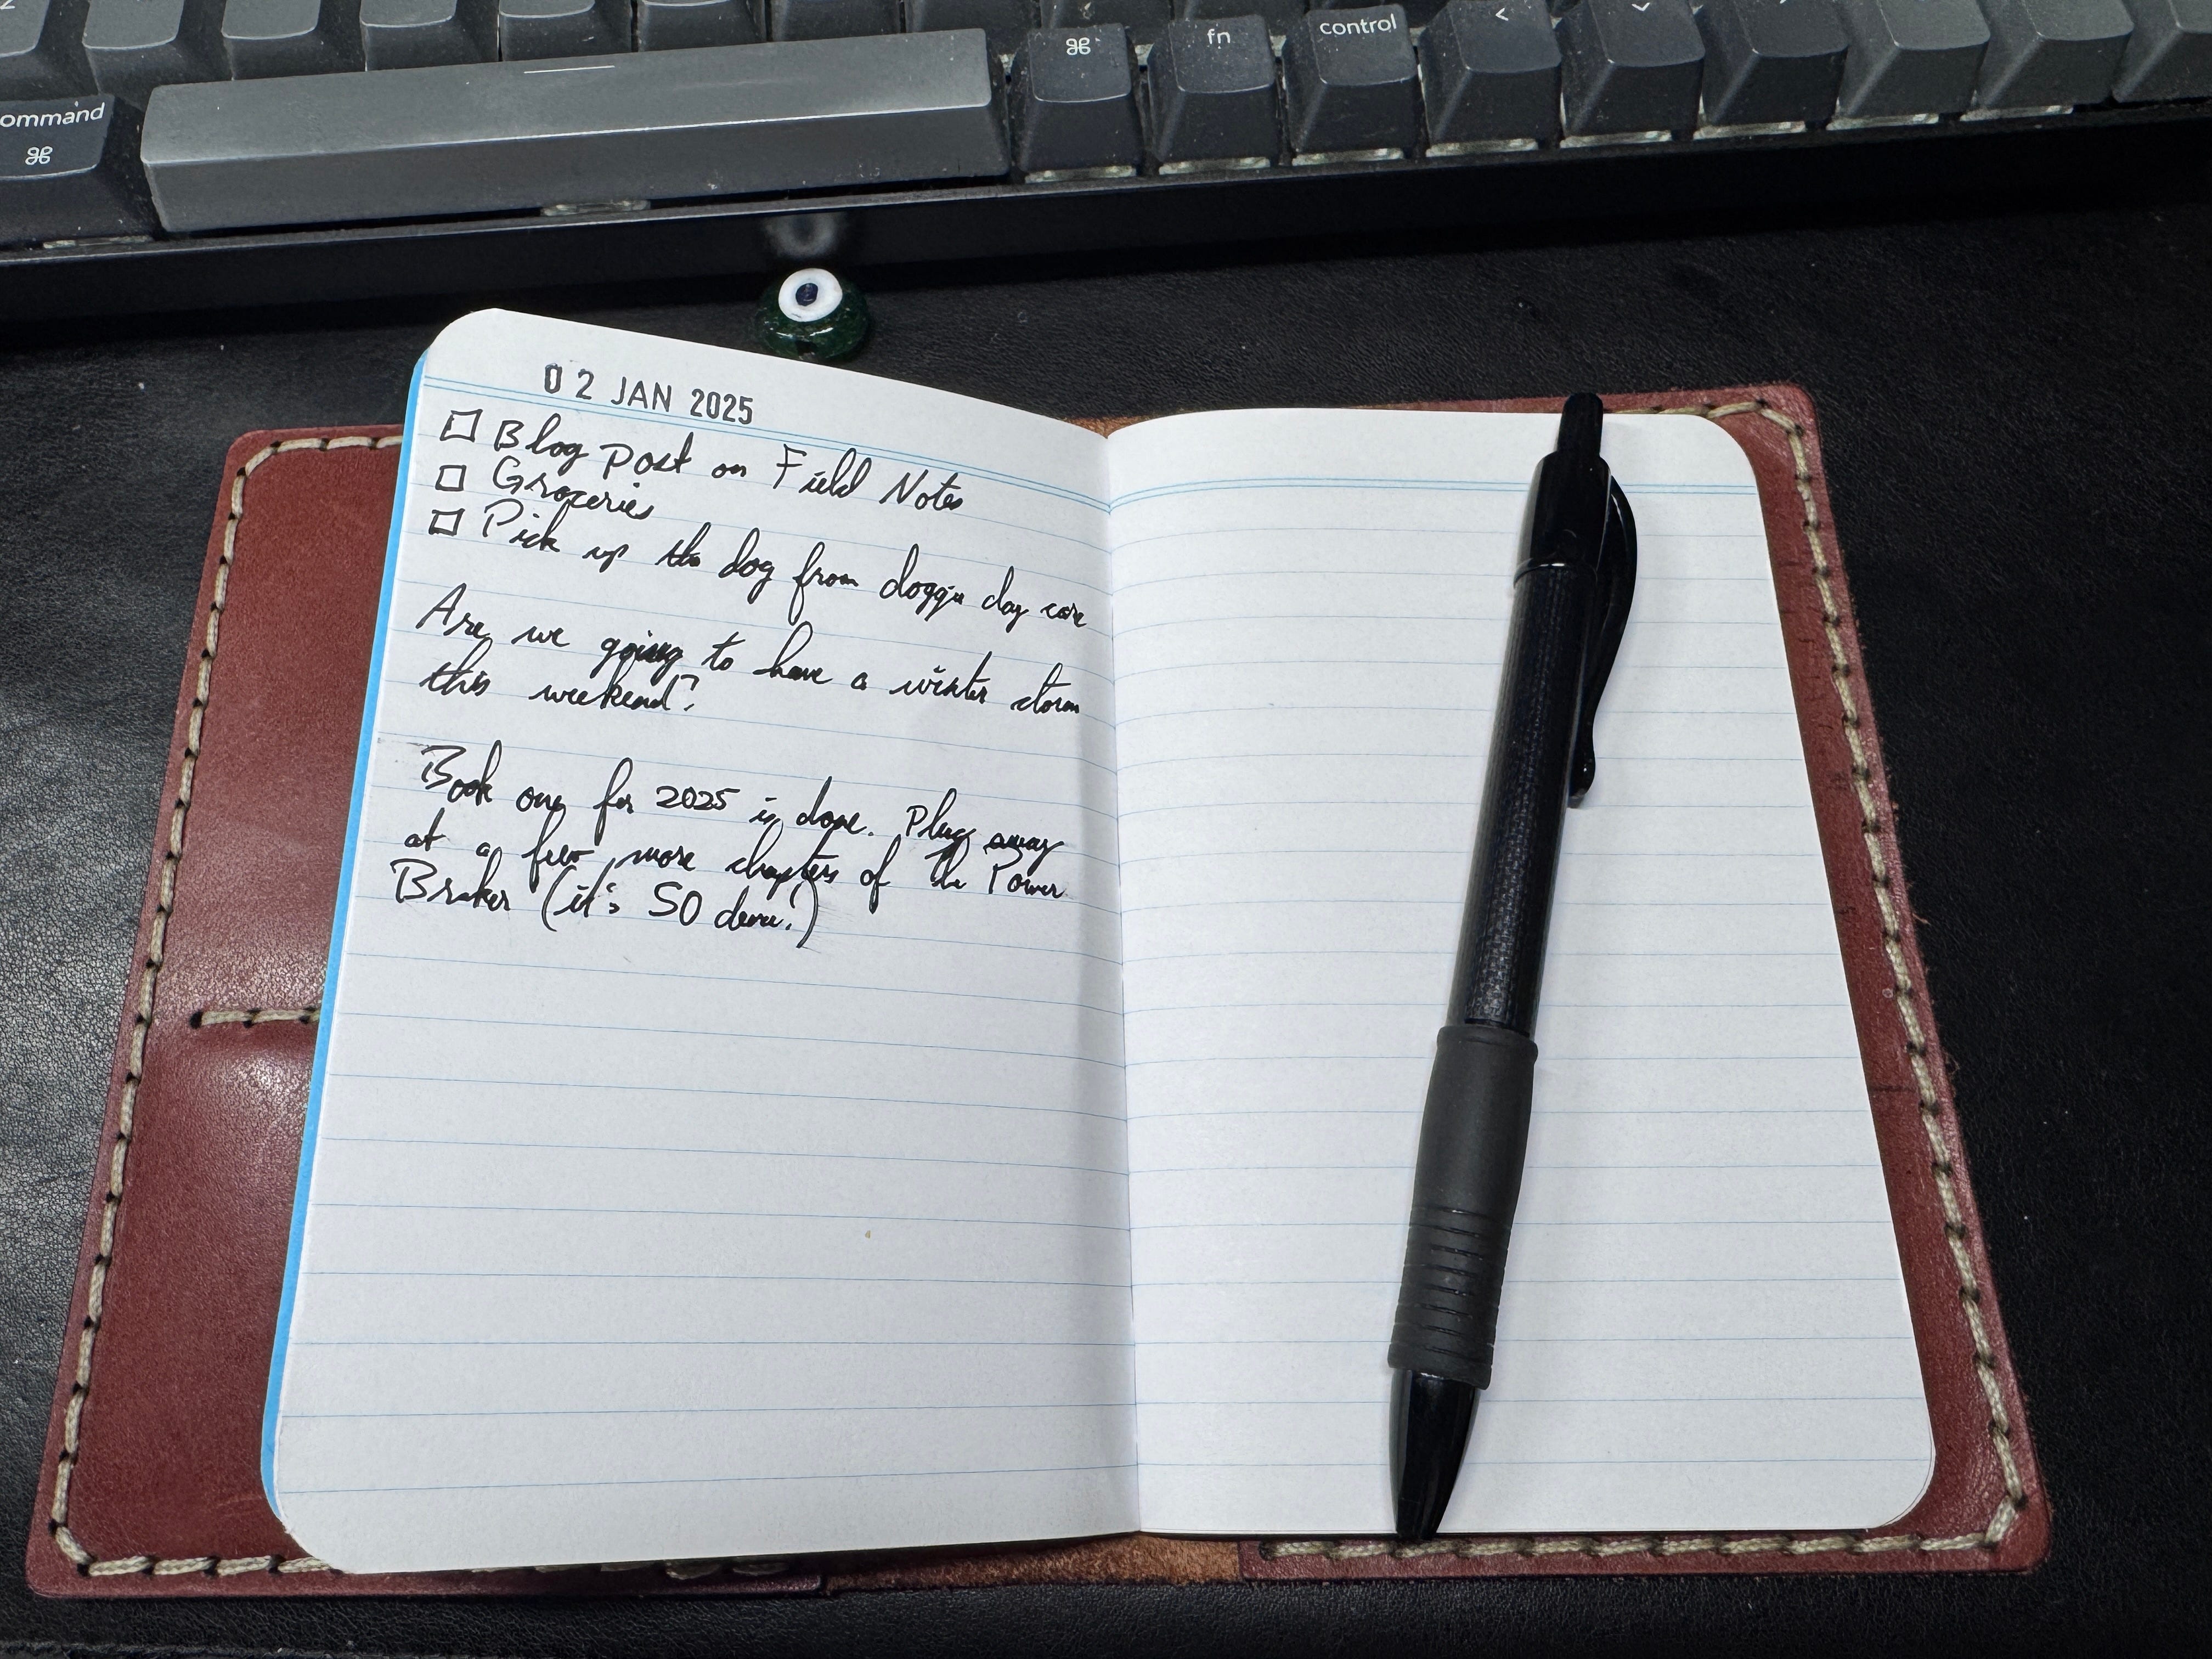 ommand
⌘
⌘
fn
control
<
02 JAN 2025
☐ Blog post on Field Notes
☐ Groceries
☐ Pick up the dog from doggie day care
Are we going to have a winter storm
this weekend?
Book one for 2025 is done. Plug away
at a few more chapters of The Power
Broker (it's SO dense!)